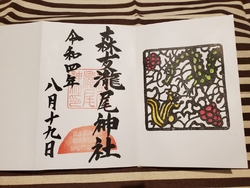 森友瀧尾神社
令和四年
八月十九日